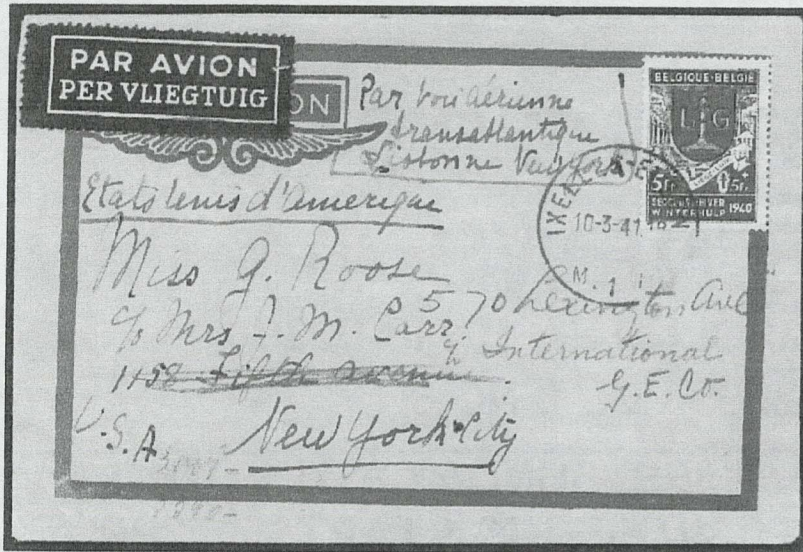 PAR AVION
PER VLIEGTUIG
ON
Par voie aérienne
transatlantique
Lisbonne New York
BELGIQUE-BELGIË
L G
5Fr 5Fr
SECOURS-HIVER
WINTERHULP 1940
IXELL
10-3-41
M. 1
Etats Unis d'amerique
Miss G. Roose
c/o Mrs J. M. Carr
570 Lexington Ave
c/o International
G.E.Co.
1158 Fifth avenue
U.S.A
New York City